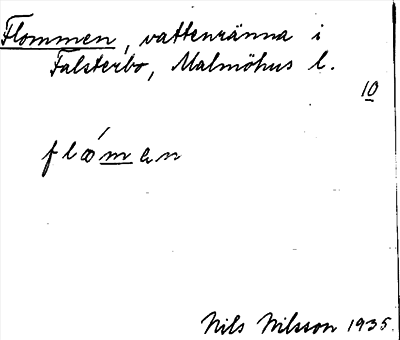 Flommen, vattenränna i
Falsterbo, Malmöhus l.
10
flo´man
Nils Nilsson 1935.